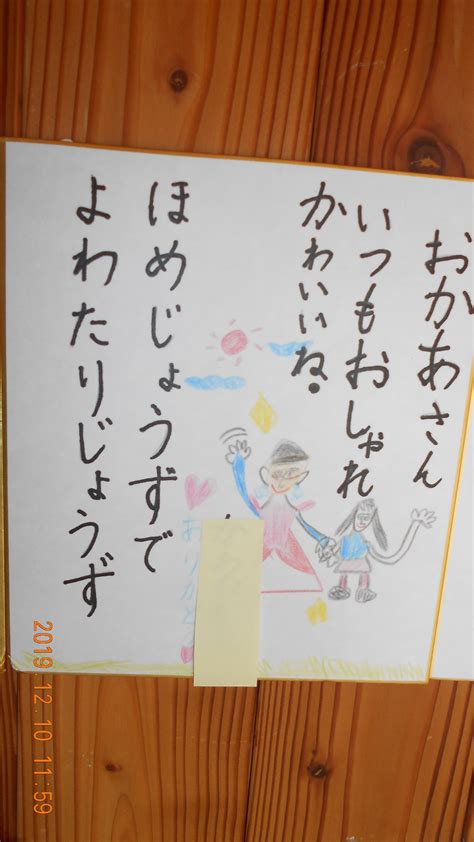 おかあさん
いつもおしゃれ
かわいいね。
ほめじょうずで
よわたりじょうず
ありがと
2019.12.10 11:59